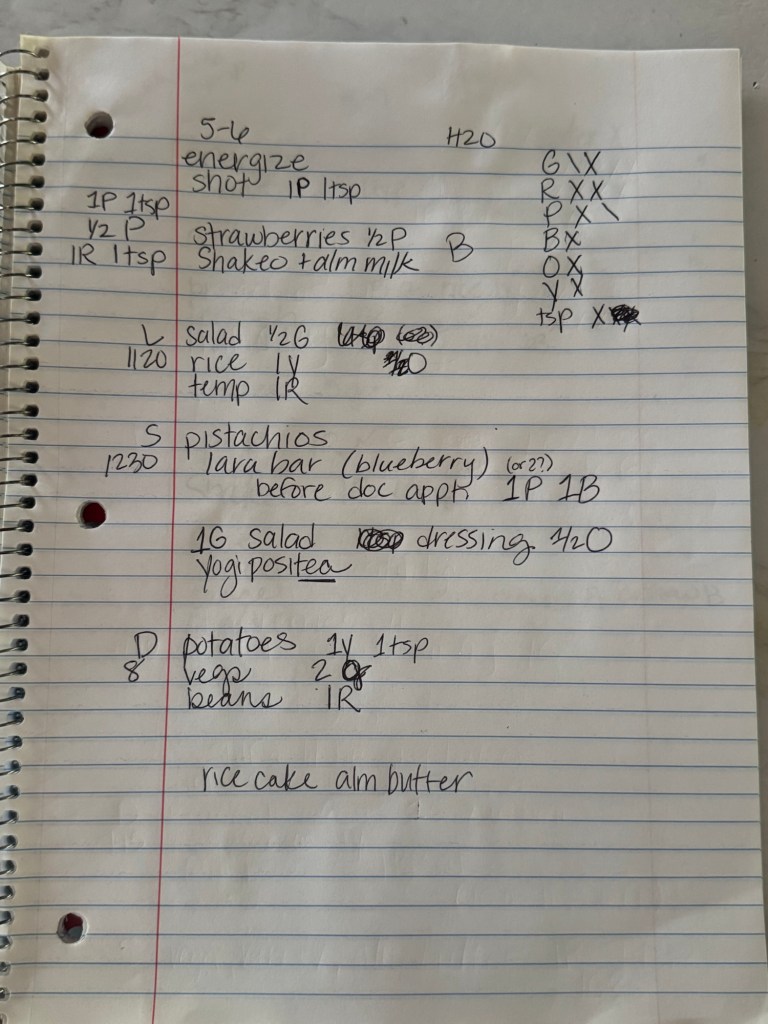 5-6 H2O
energize G \ X
shot 1P 1tsp R X X
1P 1tsp P X \
1/2 P strawberries 1/2P B B X
1R 1tsp Shakeo + alm milk O X
y X
tsp X
L salad 1/2G
1120 rice 1y 1/2O
temp 1R
S pistachios
1230 lara bar (blueberry) (or 2?)
before doc appt 1P 1B
1G salad dressing 1/2O
yogi positea
D potatoes 1y 1tsp
8 vegs 2 G
beans 1R
rice cake alm butter